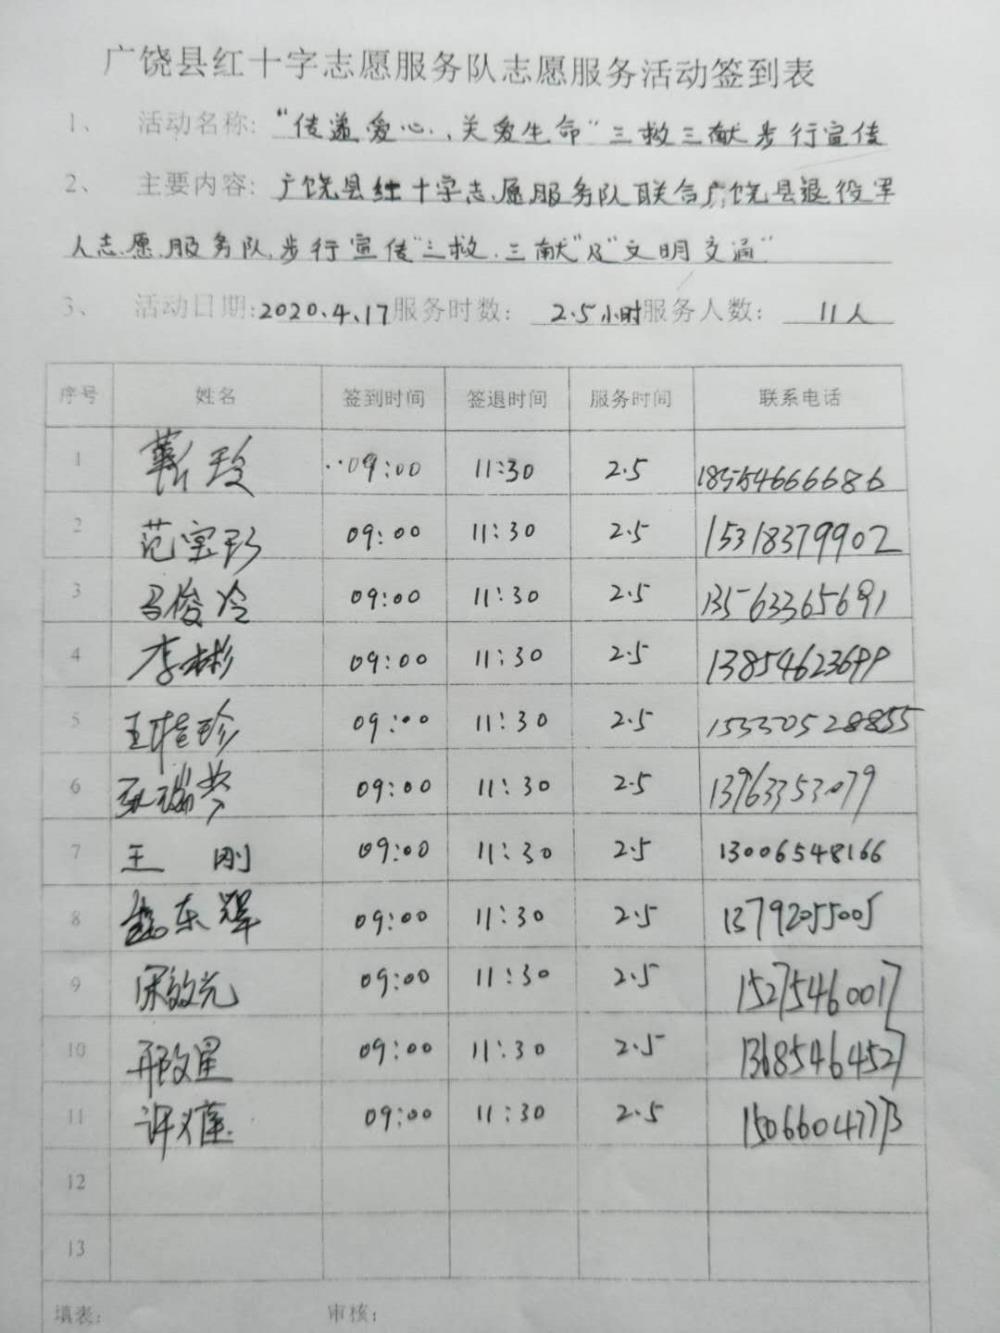 广饶县红十字志愿服务队志愿服务活动签到表
1、 活动名称: "传递爱心、关爱生命"三救三献步行宣传
2、 主要内容: 广饶县红十字志愿服务队联合广饶县退役军
人志愿服务队,步行宣传"三救.三献"及"文明交通"
3、 活动日期:2020.4.17 服务时数: 2.5小时 服务人数: 11人
序号 姓名 签到时间 签退时间 服务时间 联系电话
1 靳玫 09:00 11:30 2.5 18554666686
2 范宝珍 09:00 11:30 2.5 15318379902
3 马俊冷 09:00 11:30 2.5 13563365691
4 李彬 09:00 11:30 2.5 13854623699
5 王桂珍 09:00 11:30 2.5 15330528855
6 09:00 11:30 2.5 13963353079
7 王刚 09:00 11:30 2.5 13006548166
8 东辉 09:00 11:30 2.5 13792055005
9 宋效光 09:00 11:30 2.5 15275460017
10 邢改星 09:00 11:30 2.5 13685464527
11 许 09:00 11:30 2.5 15066047773
12
13
填表: 审核: